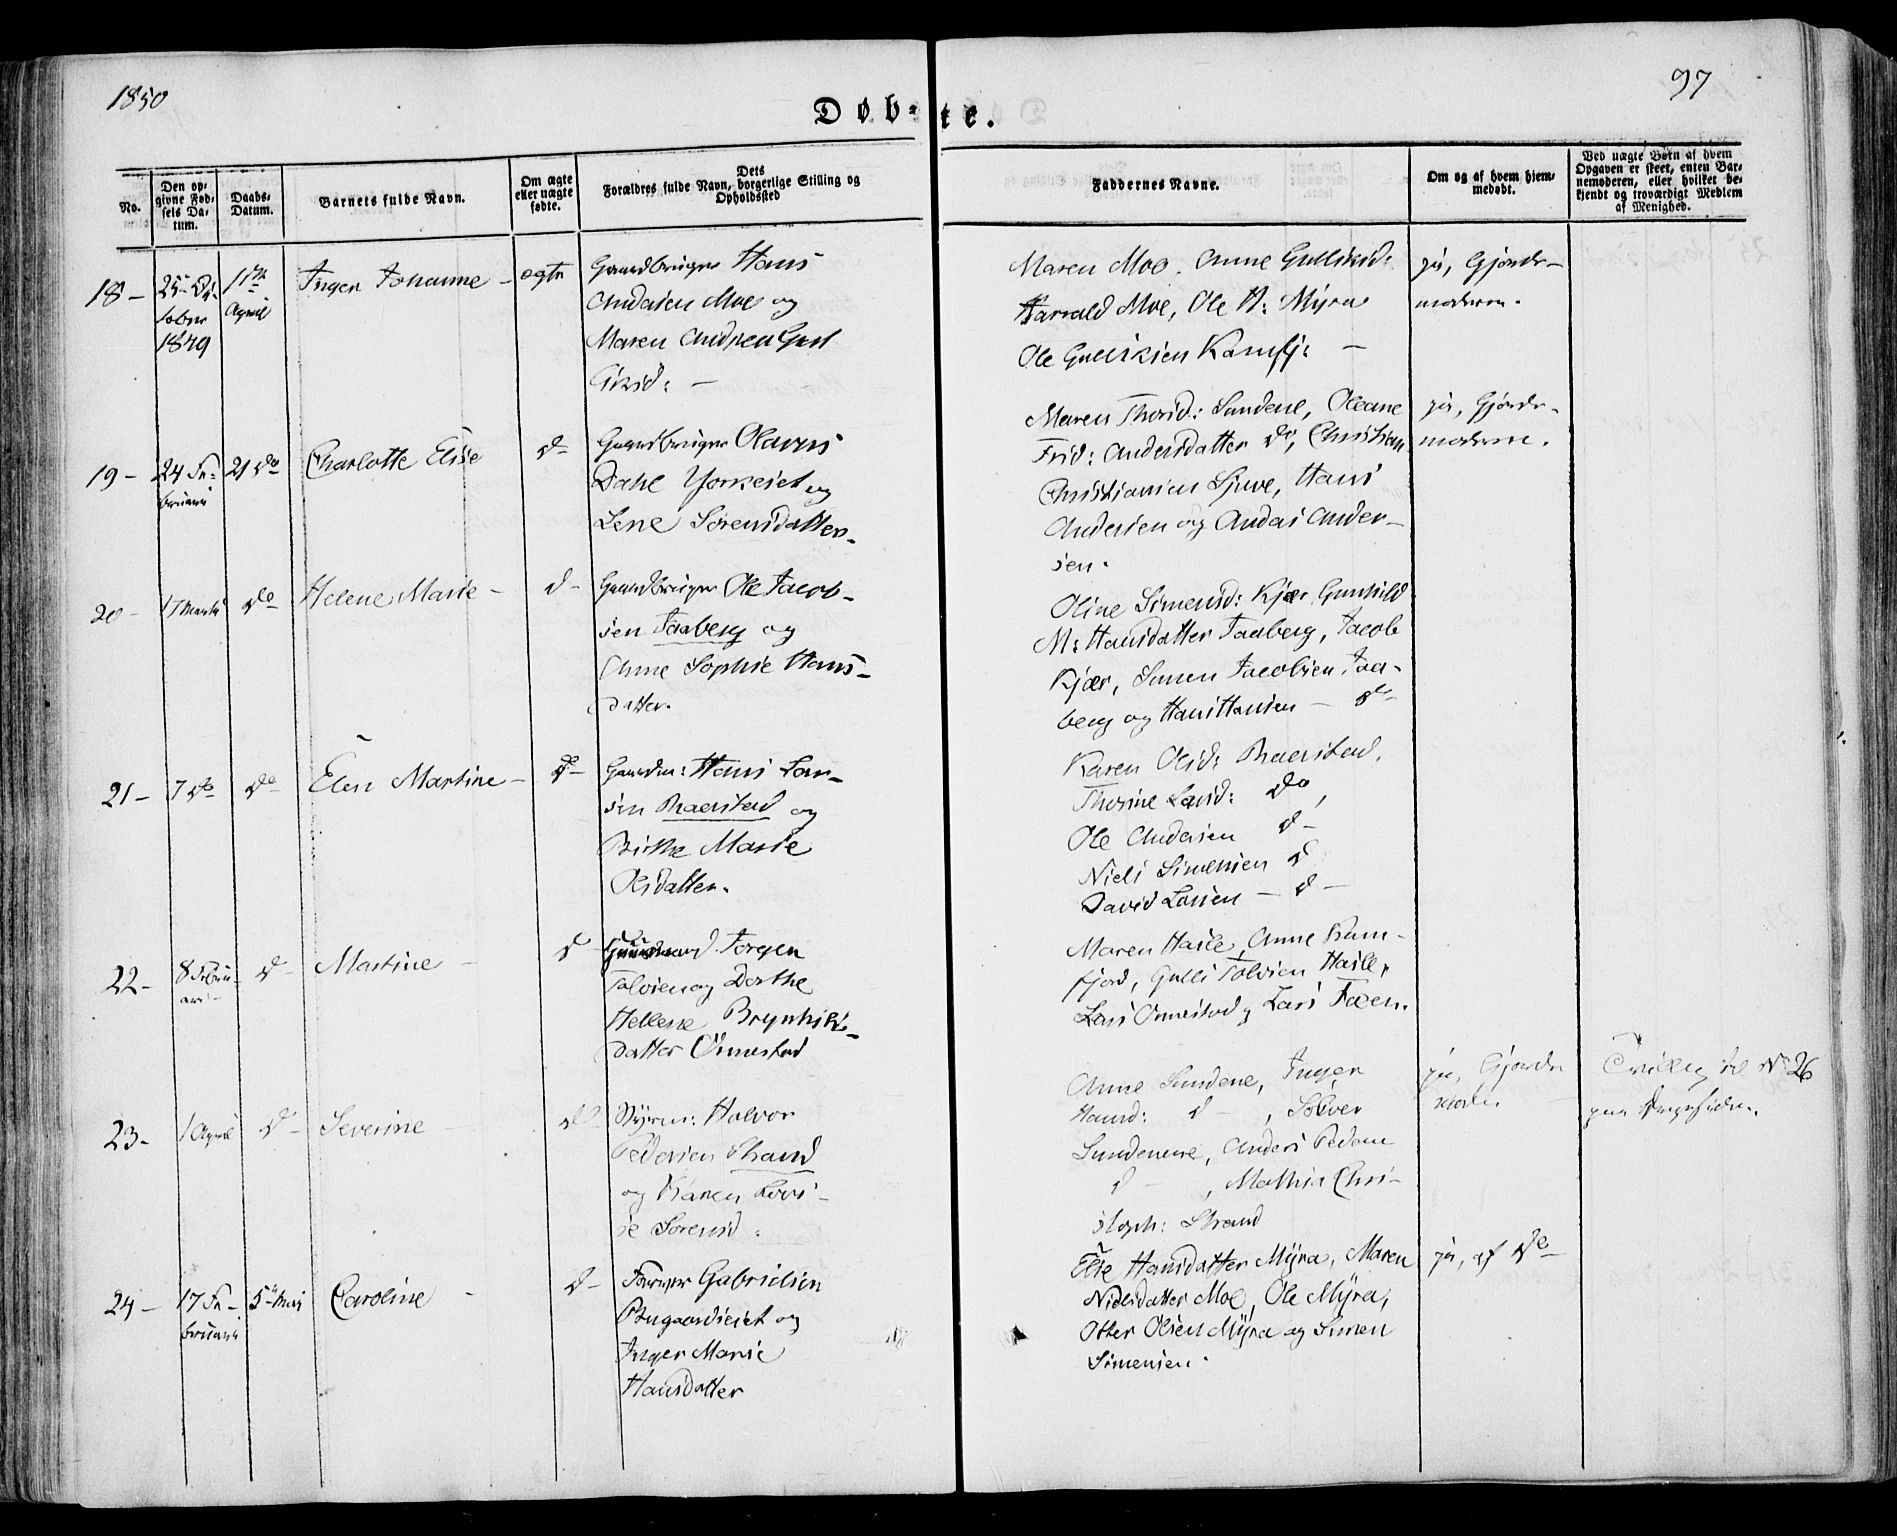 1850
97
Døb-te.
No.
Den opgivne Fødsels Datum.
Daabs-Datum.
Barnets fulde Navn.
Om ægte eller uægte fødte.
Dets Forældres fulde Navn, borgerlige Stilling og Opholdssted
Faddernes Navne.
Om og af hvem hjemmedøbt.
Ved uægte Børn af hvem Opgaven er skeet, enten Barnemoderen, eller hvilket bekjendt og troværdigt Medlem af Menighed.
18 –
25 Oc-
tober
1849
April
Inger Johanne –
ægte
Gaardbruger Hans
Andersen Moe og
Maren Andrea Gul
liksd: –
Maren Moe. Anne Gulliksd:
Harrald Moe, Ole H: Myra
Ole Gulliksen Kamfj: –
ja, Gjorde-
moderen.
19 –
24 Fe-
bruari
21 do
Charlotte Elise
do
Gaardbruger Olavus
Dahl og
Lene Sörensdatter.
Maren Thorsd: Sundene, Oleane
Frid: Andersdatter do, Christian
Christiansen Sjuve, Hans
Andersen og Andas Ander-
sen.
ja, Gjorde-
moderen.
20 –
17 Marts
do
Helene Marie –
d –
Gaardbruger Ole Jacob-
sen Faaberg og
Anne Sophie Hans-
datter.
Oline Simensd: Kjær, Gunhild
M: Hansdatter Faaberg, Jacob
Kjær, Simen Jacobsen Faa-
berg og Hans Hansen – do
21 –
7 do
do
Elen Martine –
do
Gaardm: Hans Lar-
sen Raerstad og
Birthe Marie
Olsdatter.
Karen Olsd: Raerstad,
Thorine Larsd: do,
Ole Andersen d –
Niels Simensen d
David Larsen – d –
22 –
8 Febru-
ari –
d –
Martine –
d
Gaardmand Jorgen
Tolvsen og Dorthe
Hellene Brynhilds-
datter Ormestad
Maren Hasle, Anne Kam-
fjord, Gulli Tolvsen Hasle,
Lars Ormestad og Lars Faeen.
23 –
1 April
d –
Severine –
do
Styrm: Halvor
Pedersen Strand
og Karen Lovi-
se Sorensd.
Anne Sundene, Inger
Hansd: d – , Solver
Sundenene, Anders Pedersen
d – , Mathias Chri-
stoph: Strand
ja, Gjorde
moder
Tvilling til No 26
paa Drengesiden.
24 –
17 Fe-
bruari
5te Mai
Caroline –
d –
Gabrielsen
Bugaardseiet og
Inger Marie
Hansdatter
Else Hansdatter Myra, Maren
Nielsdatter Moe, Ole Myra,
Otter Olsen Myra og Simen
Simensen.
ja, af do